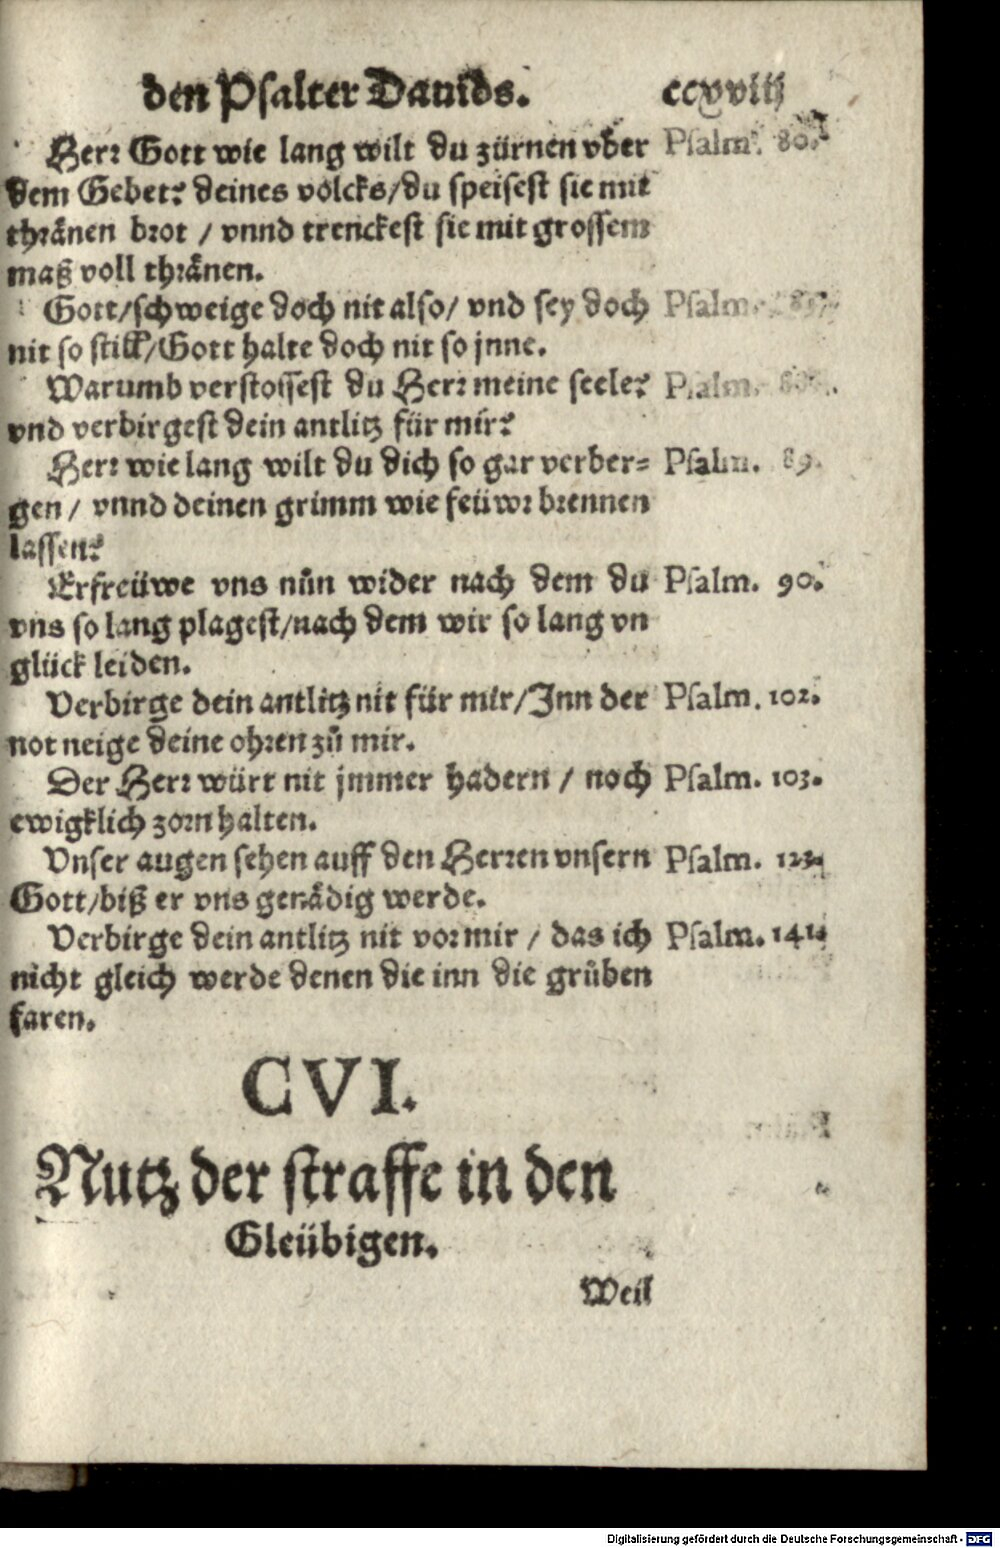 den Psalter Dauids. ccxviij
Herr Gott wie lang wilt du zürnen vber Psalm. 80.
dem Gebet? deines volcks/du speisest sie mit
thränen brot / vnnd trenckest sie mit grossem
maß voll thränen.
Gott/schweige doch nit also/ vnd sey doch Psalm.
nit so still/Gott halte doch nit so jnne.
Warumb verstossest du Herr meine seele? Psalm.
vnd verbirgest dein antlitz für mir?
Herr wie lang wilt du dich so gar verber= Psalm. 89.
gen / vnnd deinen grimm wie feüwr brennen
lassen?
Erfreüwe vns nůn wider nach dem du Psalm. 90.
vns so lang plagest/nach dem wir so lang vn
glück leiden.
Verbirge dein antlitz nit für mir/Inn der Psalm. 102.
not neige deine ohren zů mir.
Der Herr würt nit jmmer hadern / noch Psalm. 103.
ewigklich zorn halten.
Vnser augen sehen auff den Herren vnsern Psalm. 123.
Gott/biß er vns genädig werde.
Verbirge dein antlitz nit vor mir / das ich Psalm. 141.
nicht gleich werde denen die inn die grůben
faren.
CVI.
Nutz der straffe in den
Gleübigen.
Weil
Digitalisierung gefördert durch die Deutsche Forschungsgemeinschaft - DFG